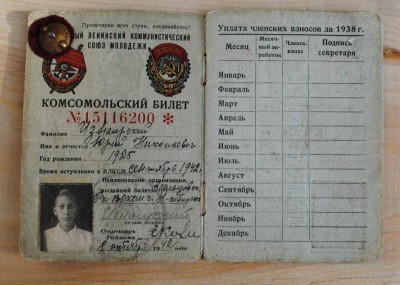 Пролетарии всех стран, соединяйтесь!
ЫЙ ЛЕНИНСКИЙ КОММУНИСТИЧЕСКИЙ
СОЮЗ МОЛОДЕЖИ
КОМСОМОЛЬСКИЙ БИЛЕТ
№15116200 *
Фамилия
Имя и отчество Юрий Николаевич
Год рождения 1925
Время вступления в ВЛКСМ сентябрь 1942
Наименование организации,
выдавшей билет
Секретарь
Райкома
8 октября 1942
Уплата членских взносов за 1938 г.
Месяц Месяч- ный за- работок Членск. взнос Подпись секретаря
Январь
Февраль
Март
Апрель
Май
Июнь
Июль
Август
Сентябрь
Октябрь
Ноябрь
Декабрь